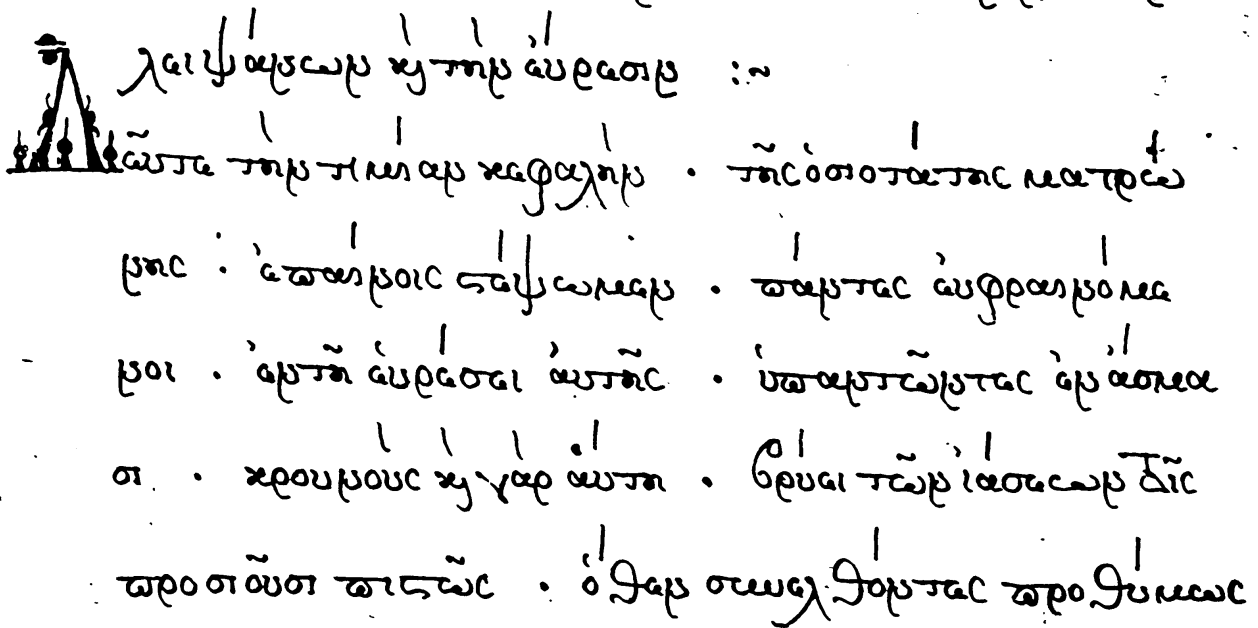 λειψάνων κὶ τὴν εὕρεσιν :~
Δεῦτε τὴν τιμίαν κεφαλὴν · τῆς ὁσιοτάτης ματρώ
νης · ἐπαίνοις στέψωμεν · πάντες εὐφραινόμε
νοι · ἐν τῆ εὑρέσει αὐτῆς · ὑπαντῶντες ἐν ἄσμα
σι · κρουνοὺς κὶ γὰρ αὕτη · βρύει τῶν ἰάσεων τοῖς
προσιοῦσι πιστῶς · ὅθεν συνελθόντες προθύμως